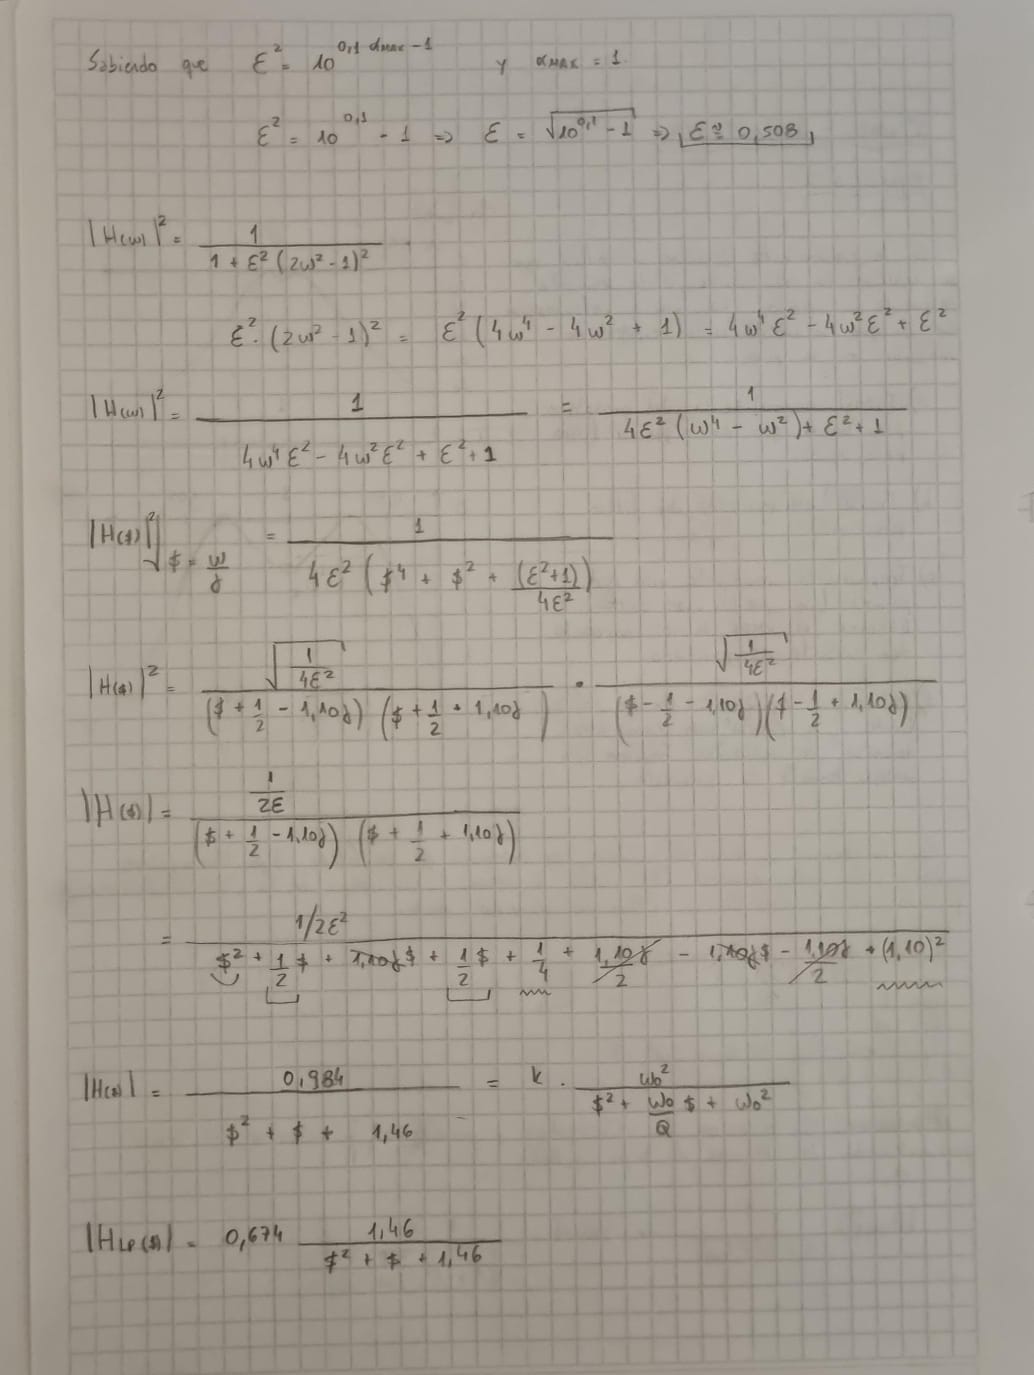 Sabiendo que ε² = 10^(0,1 αMAX - 1) y αMAX = 1
ε² = 10^(0,1) - 1 => ε = √(10^(0,1) - 1) => ε ≅ 0,508
|H(ω)|² = 1 / (1 + ε² (2ω² - 1)²)
ε² · (2ω² - 1)² = ε² (4ω⁴ - 4ω² + 1) = 4ω⁴ε² - 4ω²ε² + ε²
|H(ω)|² = 1 / (4ω⁴ε² - 4ω²ε² + ε² + 1) = 1 / (4ε² (ω⁴ - ω²) + ε² + 1)
|H($)|²|$ = ω/j = 1 / (4ε² ($⁴ + $² + (ε²+1)/4ε²))
|H($)|² = √(1/4ε²) / (($ + 1/2 - 1,10j) ($ + 1/2 + 1,10j)) · √(1/4ε²) / (($ - 1/2 - 1,10j)($ - 1/2 + 1,10j))
|H($)| = (1/2ε) / (($ + 1/2 - 1,10j) ($ + 1/2 + 1,10j))
= (1/2ε²) / ($² + 1/2 $ + 1,10j$ + 1/2 $ + 1/4 + 1,10j/2 - 1,10j$ - 1,10j/2 + (1,10)²)
|H($)| = 0,984 / ($² + $ + 1,46) = k · ω₀² / ($² + ω₀/Q $ + ω₀²)
|HLP($)| = 0,674 1,46 / ($² + $ + 1,46)